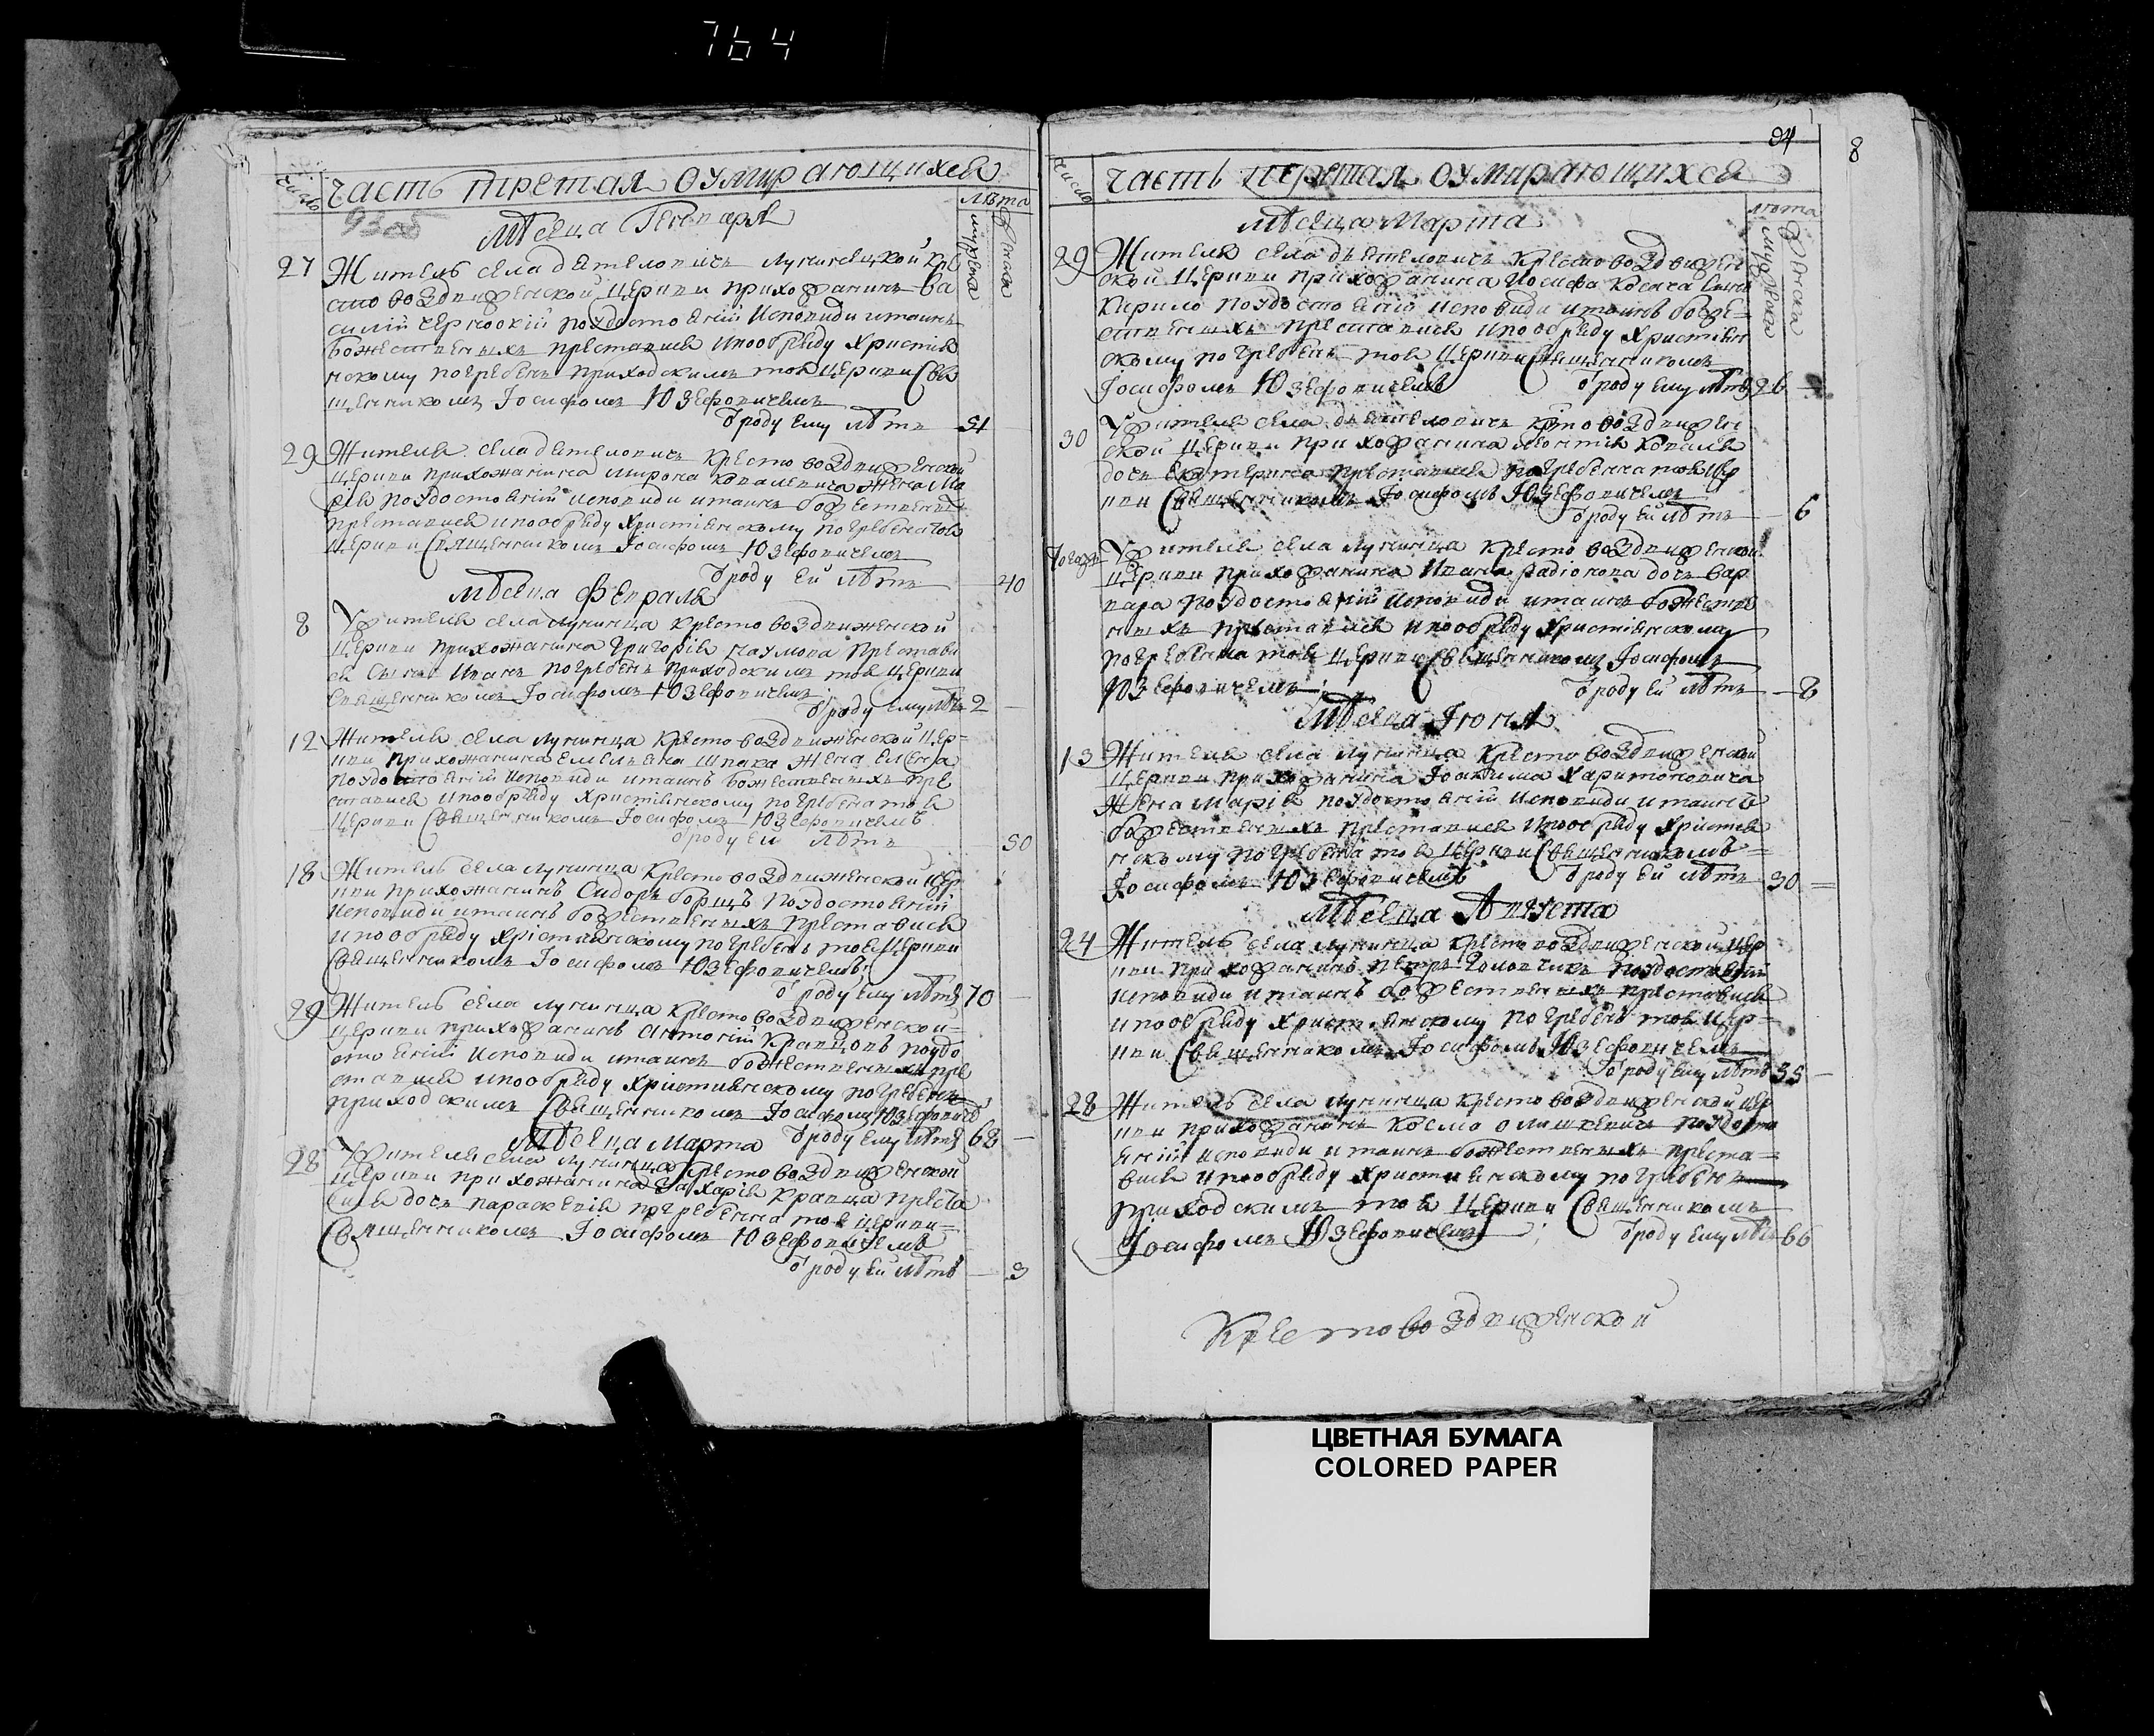 764
Число
Часть третая оумирающихся
Лѣта
мужеска
женска
93 об
Мѣсяца Генваря
27
Житель села дѣтеловичъ Лунинецкой Кре
сто воздвиженской церкви прихожанинъ Ва
силій по удостоеніи исповиди и таинъ
Божественныхъ преставися и по обряду Христія
нскому погребенъ приходскимъ тоя церкви Свя
щенникомъ Іосифомъ Юзефовичемъ
ѿ роду ему лѣтъ 51
29
Жителя села дѣтеловичъ Кресто воздвиженской
церкви прихожанина Мирона Ковалевича жена Ма
рія по удостоеніи исповиди и таинъ божественны
преставися и по обряду Христіянскому погребена тоя
церкви Священникомъ Іосифомъ Юзефовичемъ
ѿ роду ей лѣтъ 40
Мѣсяца Февраля
8
Жителя села Лунинца Кресто воздвиженской
церкви прихожанина Григорія Наумова престави
ся сынъ Иванъ погребенъ приходскимъ тоя церкви
Священникомъ Іосифомъ Юзефовичемъ
ѿ роду ему лѣтъ 2
12
Жителя села Лунинца Кресто воздвиженской цер=
кви прихожанина Емеляна Шпака жена Елена
по удостоеніи исповиди и таинъ Божественныхъ пре
ставися и по обряду Христіянскому погребена тоя
церкви Священникомъ Іосифомъ Юзефовичемъ
ѿ роду ей лѣтъ 50
18
Житель села Лунинца Кресто воздвиженской цер
кви прихожанинъ Сидоръ Борщъ по удостоеніи
исповиди и таинъ божественныхъ преставися
и по обряду Христіянскому погребенъ тоя церкви
Священникомъ Іосифомъ Юзефовичемъ
ѿ роду ему лѣтъ 70
29
Житель села Лунинца Кресто воздвиженской=
церкви прихожанинъ Антоній Кравцовъ по удо
стоеніи исповиди и таинъ божественныхъ пре
ставися и по обряду Христіянскому погребенъ
приходскимъ Священникомъ Іосифомъ Юзефовиче
ѿ роду ему лѣтъ 68
Мѣсяца Марта
28
Жителя села Лунинца Кресто воздвиженской
церкви прихожанина Захарія Кравца преста
вися дочь Параскевія погребенна тоя церкви=
Священникомъ Іосифомъ Юзефовичемъ
ѿ роду ей лѣтъ 3
94
8
Число
Часть третая оумирающихся
Лѣта
мужеска
женска
Мѣсяца Марта
29
Жителя села дѣтеловичъ Кресто воздвижен
ской церкви прихожанина Иосифа Косача сынъ
Кирило по удостоеніи исповиди и таинъ боже=
ственныхъ преставися и по обряду Христіян
скому погребенъ тоя церкви Священникомъ
Іосифомъ Юзефовичемъ ѿ роду ему лѣтъ 26
30
Жителя села дѣтеловичъ Кресто воздвижен
ской церкви прихожанина Леонтія Коваля
дочь Екатерина преставися погребенна тоя цер
кви Священникомъ Іосифомъ Юзефовичемъ
ѿ роду ей лѣтъ 6
Тогожъ
Жителя села Лунинца Кресто воздвиженской
церкви прихожанина Ивана Радіонова дочь Вар
вара по удостоеніи исповиди и таинъ божестве
нныхъ преставися и по обряду Христіянскому
погребенна тоя церкви Священникомъ Іосифомъ
Юзефовичемъ ѿ роду ей лѣтъ 8
Мѣсяца Іюня
13
Жителя села Лунинца Кресто воздвиженской
церкви прихожанина Іоакима Харитоновича
жена Марія по удостоеніи исповиди и таинъ
божественныхъ преставися и по обряду Христія
нскому погребена тоя церкви Священникомъ=
Іосифомъ Юзефовичемъ ѿ роду ей лѣтъ 30
Мѣсяца Августа
24
Житель села Лунинца Кресто воздвиженской цер
кви прихожанинъ Петръ по удостоеніи
исповиди и таинъ божественныхъ преставися
и по обряду Христіянскому погребенъ тоя цер=
кви Священникомъ Іосифомъ Юзефовичемъ
ѿ роду ему лѣтъ 35
28
Житель села Лунинца Кресто воздвиженской цер
кви прихожанинъ Косма по удосто
еніи исповиди и таинъ божественныхъ преста=
вися и по обряду Христіянскому погребенъ
приходскимъ тоя церкви Священникомъ
Іосифомъ Юзефовичемъ; ѿ роду ему лѣтъ 66
Крестовоздвиженской
ЦВЕТНАЯ БУМАГА
COLORED PAPER